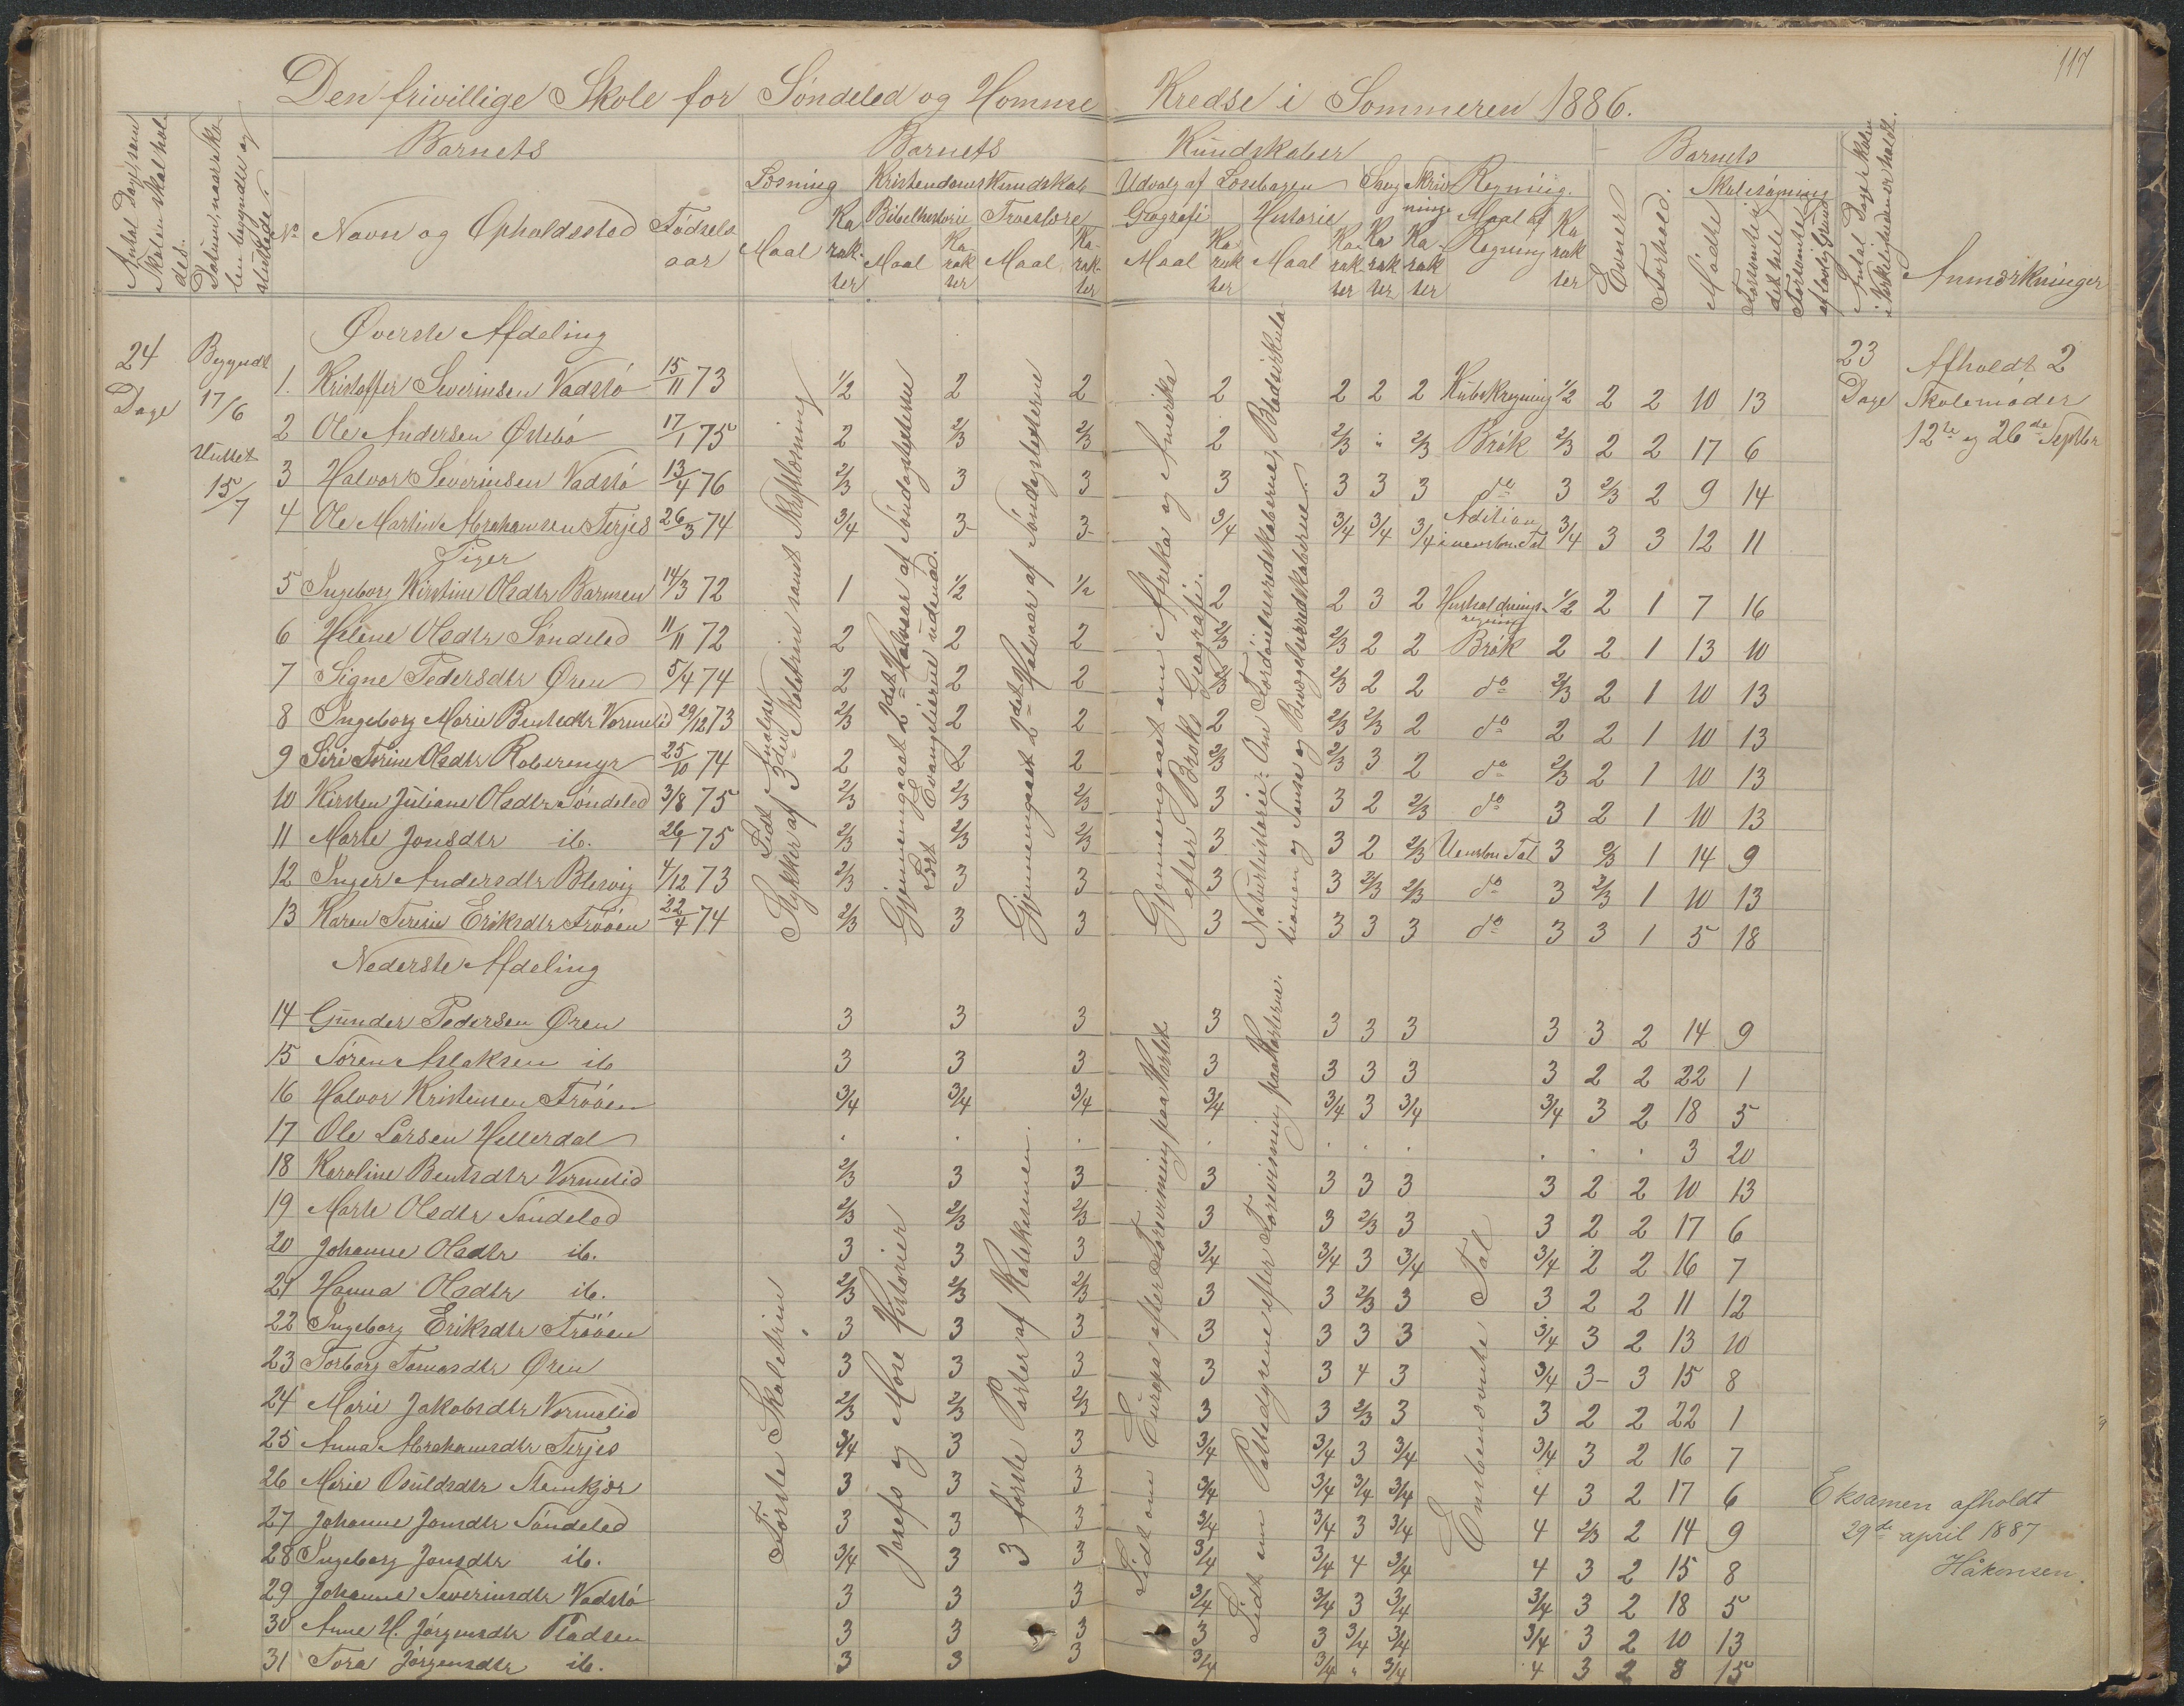 117
Den frivillige Skole for Søndeled og Homme Kredse i Sommeren 1886.
Antal Dage, som Skolen skal holdes.
Datum, naar Skolen begyndte og sluttede.
Barnets
Barnets Kundskaber
Barnets
Antal Dage Skolen i Virkeligheden er holdt.
Læsning Kristendomskundskab Udvalg af Læsebogen Sang Skrivning Regning. Skolesøgning
Bibelhistorie Troeslære Geografi Historie
No Navn og Opholdssted Fødselsaar Maal Karakter Maal Karakter Maal Karakter Maal Karakter Maal Karakter Karakter Karakter Maal af Regning Karakter Evner Forhold. Mødte Forsømte det hele Forsømte af lovlig Grund Anmærkninger
Øverste Afdeling
24 Dage
Begyndt 17/6
Sluttet 15/7
23 Dage
Afholdt 2
Skolemøder
12te og 26de Septbr
1. Kristoffer Severinsen Vadstø 15/11 73 1/2 2 2 2 2 2 2 Kubikregning 1/2 2 2 10 13
2 Ole Andersen Østebø 17/1 75 2 2/3 2/3 2 2/3 " 2/3 Brøk 2/3 2 2 17 6
3 Halvor Severinsen Vadstø 13/4 76 2/3 3 3 3 3 3 3 do 3 2/3 2 9 14
4 Ole Martin Abrahamsen Terjes 26/3 74 3/4 3- 3- 3/4 3/4 3/4 3/4 Adition i uensben. Tal 3/4 3 3 12 11
Piger
5 Ingeborg Kirstine Olsdtr Barmen 14/3 72 1 1/2 1/2 2 2 3 2 Husholdningsregning 1/2 2 1 7 16
6 Helene Olsdtr Søndeled 11/11 72 2 2 2 2/3 2/3 2 2 Brøk 2 2 1 13 10
7 Signe Pedersdtr Øren 5/4 74 2 2 2 2/3 2/3 2 2 do 2/3 2 1 10 13
8 Ingeborg Marie Bentsdtr Vormelid 29/12 73 2/3 2 2 2 2/3 2/3 2 do 2 2 1 10 13
9 Siri Torine Olsdtr Roberemyr 25/10 74 2 2 2 2/3 2/3 3 2 do 2/3 2 1 10 13
10 Kirsten Juliane Olsdtr Søndeled 3/8 75 2/3 2/3 2/3 3 3 2 2/3 do 3 2 1 10 13
11 Marte Jonsdtr ib. 26/1 75 2/3 2/3 2/3 3 3 2 2/3 Uensben Tal 3 2/3 1 14 9
12 Inger Andersdtr Blesvig 4/12 73 2/3 3 3 3 3 2/3 2/3 do 3 2/3 1 10 13
13 Karen Teresie Eriksdtr Trøoen 22/4 74 2/3 3 3 3 3 3 3 do 3 3 1 5 18
Lidt Analyse
Stykker af 3die Skoletrin samt Skriftlæsning
Gjennemgaaet 2det Halvaar af Søndagstexterne
Lært Evangelierne udenad.
Gjennemgaaet 2det Halvaar af Søndagstexterne
Gjennemgaaet om Afrika og Amerika
efter Broks Geografi.
Naturhistorie: Om Fordøielsesredskaberne, Blodcirkulationen og Sanse og Bevægelsesredskaberne.
Nederste Afdeling
14 Gunder Pedersen Øren 3 3 3 3 3 3 3 3 3 2 14 9
15 Søren Aslaksen ib 3 3 3 3 3 3 3 3 2 2 22 1
16 Halvor Kristensen Trøoen 3/4 3/4 3/4 3/4 3/4 3 3/4 3/4 3 2 18 5
17 Ole Larsen Hellerdal . . . . . . . . . . 3 20
18 Karoline Bentsdtr Vormelid 2/3 3 3 3 3 3 3 3 2 2 10 13
19 Marte Olsdtr Søndeled 2/3 2/3 2/3 3 3 2/3 3 3 2 2 17 6
20 Johanne Olsdtr ib. 3 3 3 3/4 3/4 3 3/4 3/4 2 2 16 7
21 Hanna Olsdtr ib. 2/3 2/3 2/3 3 3 2/3 3 3 2 2 11 12
22 Ingeborg Eriksdtr Trøoen 3 3 3 3 3 3 3 3/4 3 2 13 10
23 Torborg Tomasdtr Øren 3 3 3 3 3 4 3 3/4 3- 3 15 8
24 Marie Jakobsdtr Vormelid 2/3 2/3 2/3 3 3 2/3 3 3 2 2 22 1
25 Anna Abrahamsdtr Terjes 3/4 3 3 3/4 3/4 3 3/4 3/4 3 2 16 7
26 Marie Osuldsdtr Stamkjær 3 3 3 3/4 3/4 3/4 3/4 4 3 2 17 6
27 Johanne Jonsdtr Søndeled 3 3 3 3/4 3/4 3 3/4 4 2/3 2 14 9
28 Ingeborg Jonsdtr ib. 3/4 3 3 3/4 3/4 4 3/4 4 3 2 15 8
29 Johanne Severinsdtr Vadstø 3 3 3 3/4 3/4 3 3/4 3/4 3 2 18 5
30 Anne H. Jørgensdtr Pladsen 3 3 3 3 3 3/4 3/4 3/4 3 2 10 13
31 Tora Jørgensdtr ib. 3 3 3 3/4 3/4 " 3/4 4 3 2 8 15
Første Skoletrin
Josefs og Mose Historier
3 første Parter af Katekismen.
Lidt om Europa efter Forevisning paa Kartet
Lidt om Pattedyrene efter Forevisning paa Karterne.
Ensbenævnte Tal
Eksamen afholdt
29de april 1887
Håkonsen.